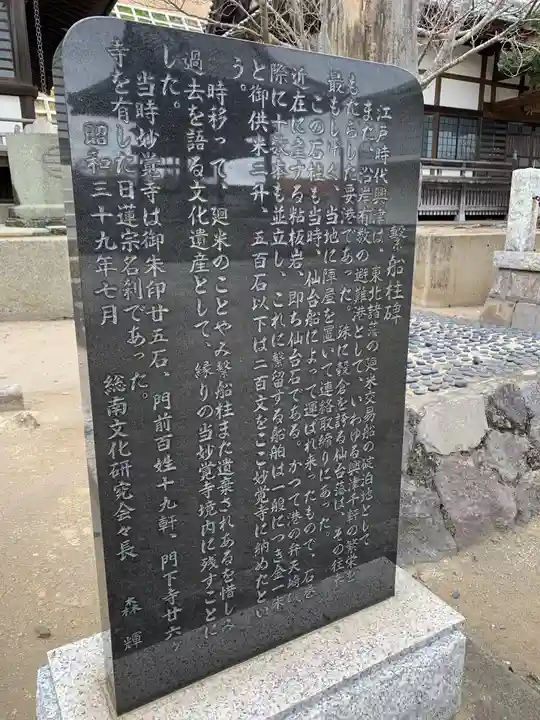 繋船柱碑
江戸時代興津は、東北諸藩の廻米交易船の碇泊地として
また、沿岸有数の避難港として、いわゆる興津千軒の繁栄を
もたらした要港であった。殊に穀倉を誇る仙台藩は、その往来
最もしげく、当地に陣屋を置いて連絡取締りにあった。
この石柱も当時、仙台船によって運ばれ来ったもので、石巻
近在に産する粘板岩、即ち仙台石である。かつて港の弁天崎
際に十数本も並立し、これに繋留する船舶は一般につき金一朱
と御供米二升、五百石以下は二百文をここ妙覚寺に納めたとい
う。
時移って、廻米のことやみ繋船柱また遺棄されあるを惜しみ
過去を語る文化遺産として、縁りの当妙覚寺境内に残すことに
した。
当時妙覚寺は御朱印廿五石、門前百姓十九軒、門下寺廿六ヶ
寺を有した日蓮宗名刹であった。
昭和三十九年七月 総南文化研究会々長 森 輝